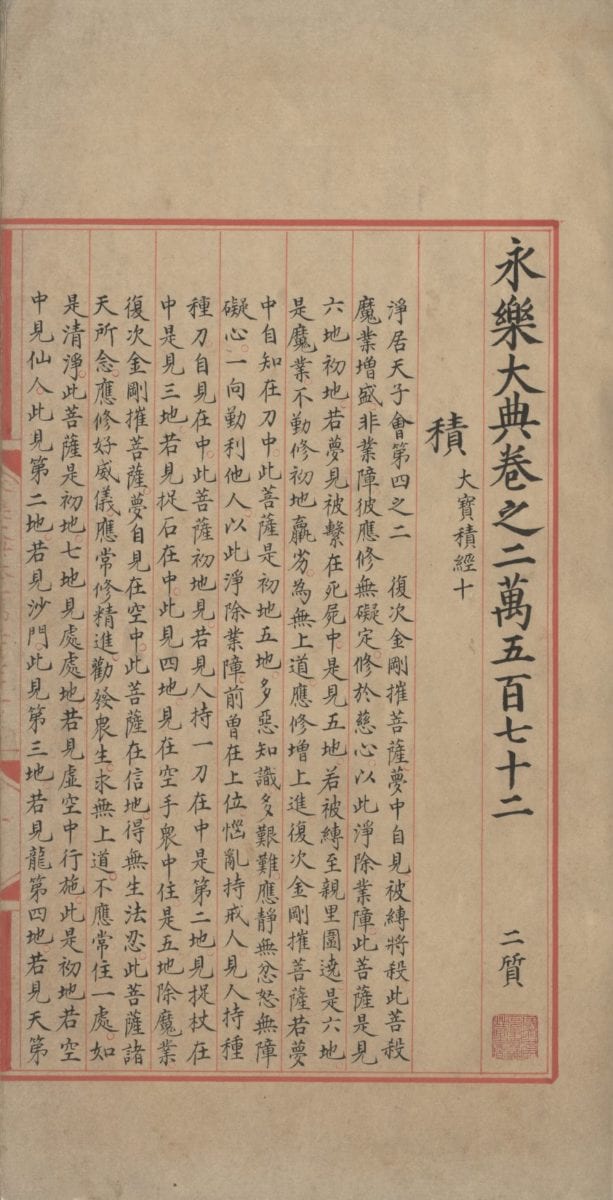 永樂大典卷之二萬五百七十二 二質
積 大寶積經十
淨居天子會第四之二 復次金剛摧菩薩夢中自見被縛將殺此菩殺
魔業增盛非業障彼應修無礙定修於慈心以此淨除業障此菩薩是見
六地初地若夢見被繫在死屍中是見五地若被縛至親里圍遶是六地
是魔業不勤修初地羸劣為無上道應修增上進復次金剛摧菩薩若夢
中自知在刀中此菩薩是初地五地多惡知識多艱難應靜無忿怒無障
礙心一向勤利他人以此淨除業障前曾在上位惱亂持戒人見人持種
種刀自見在中此菩薩初地見若見人持一刀在中是第二地見捉杖在
中是見三地若見捉石在中此見四地見在空手衆中住是五地除魔業
復次金剛摧菩薩夢自見在空中此菩薩在信地得無生法忍此菩薩諸
天所念應修好威儀應常修精進勸發衆生求無上道不應常住一處如
是清淨此菩薩是初地七地見處處地若見虛空中行施此是初地若空
中見仙人此見第二地若見沙門此見第三地若見龍第四地若見天第